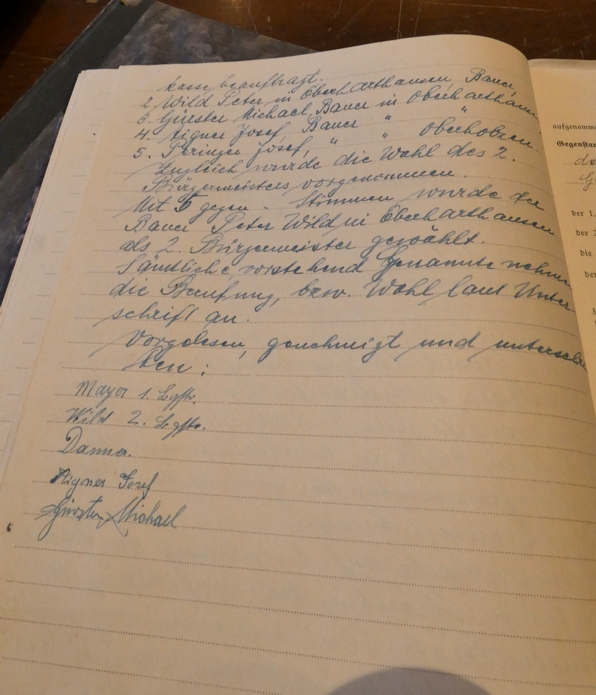 kasse beauftragt.
2. Wild Peter in Oberharthausen, Bauer,
3. Gürster Michael Bauer in Oberharthausen
4. Aigner Josef, Bauer " "
5. Josef, " " Oberhoben.
Zugleich wurde die Wahl des 2.
Bürgermeisters vorgenommen.
Mit 5 gegen - Stimmen wurde der
Bauer Peter Wild in Oberharthausen
als 2. Bürgermeister gewählt.
Sämtliche vorstehend Genannte nehmen
die Berufung, bzw. Wahl laut Unter-
schrift an.
Vorgelesen, genehmigt und unterschrie
ben:
Mayer 1. Bgstr.
Wild 2. Bgstr.
Danner.
Aigner Josef
Gürster Michael
aufgenomm
Gegenstan
der 1.
der 2
die
der